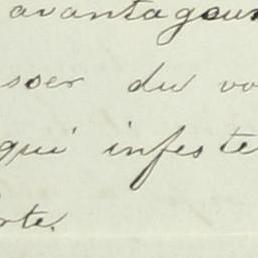 avantageus
sser du vo
qui infeste
rte.